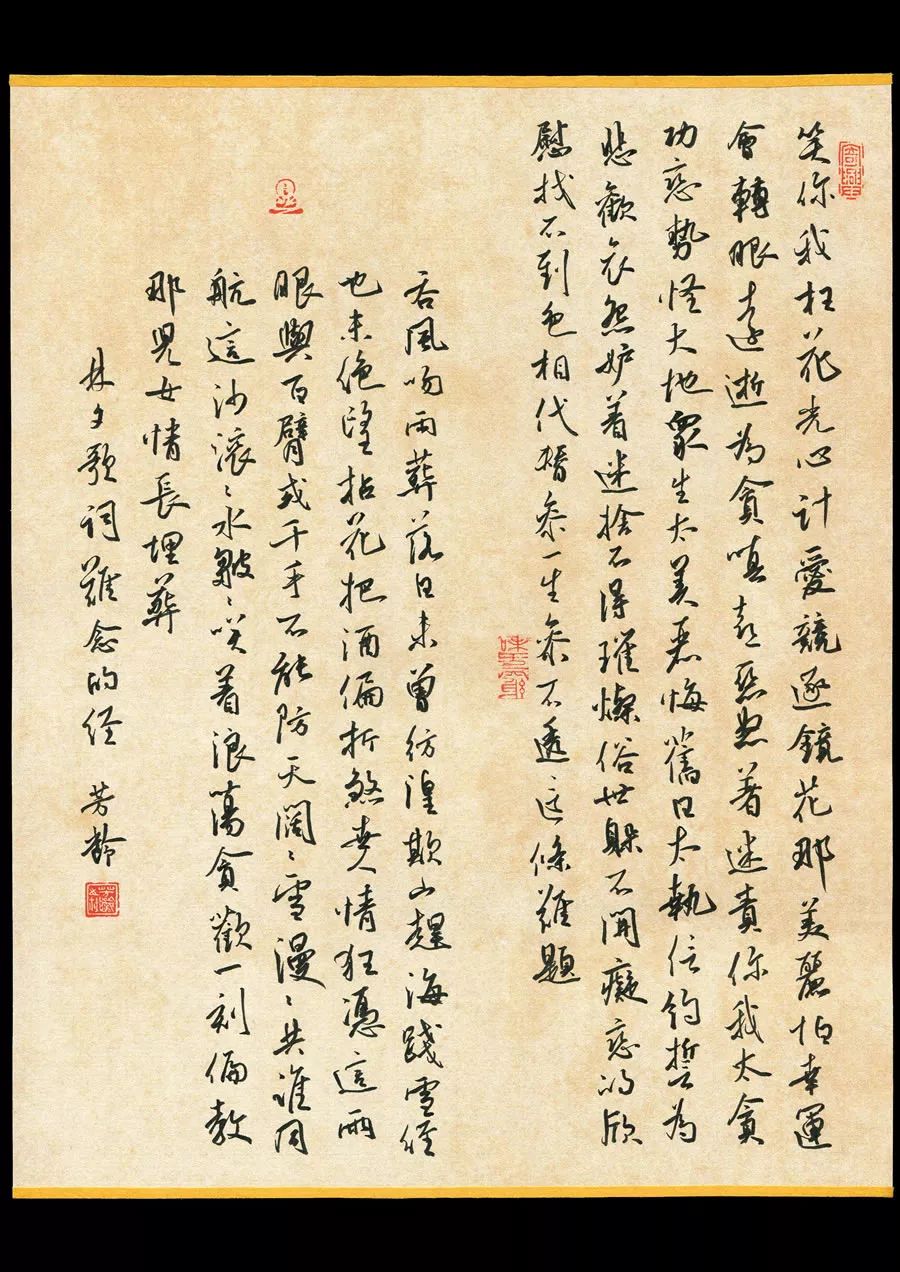 笑你我枉花光心計愛競逐鏡花那美麗怕幸運
會轉眼遠逝為貪嗔喜惡怒着迷責你我太貪
功戀勢怪大地眾生太美麗悔舊日太執信約誓為
悲歡哀怨妒着迷捨不得璀燦俗世躲不開癡戀的欣
慰找不到色相代替參一生參不透这條難題
吞風吻雨葬落日未曾彷徨欺山趕海踐雪徑
也未絕望拈花把酒偏折煞世人情狂憑這兩
眼與百臂或千手不能防天闊〻雪漫〻共誰同
航這沙滾〻水皺〻笑着浪蕩貪歡一刻偏教
那兒女情長埋葬
林夕歌詞難念的经 芳齡